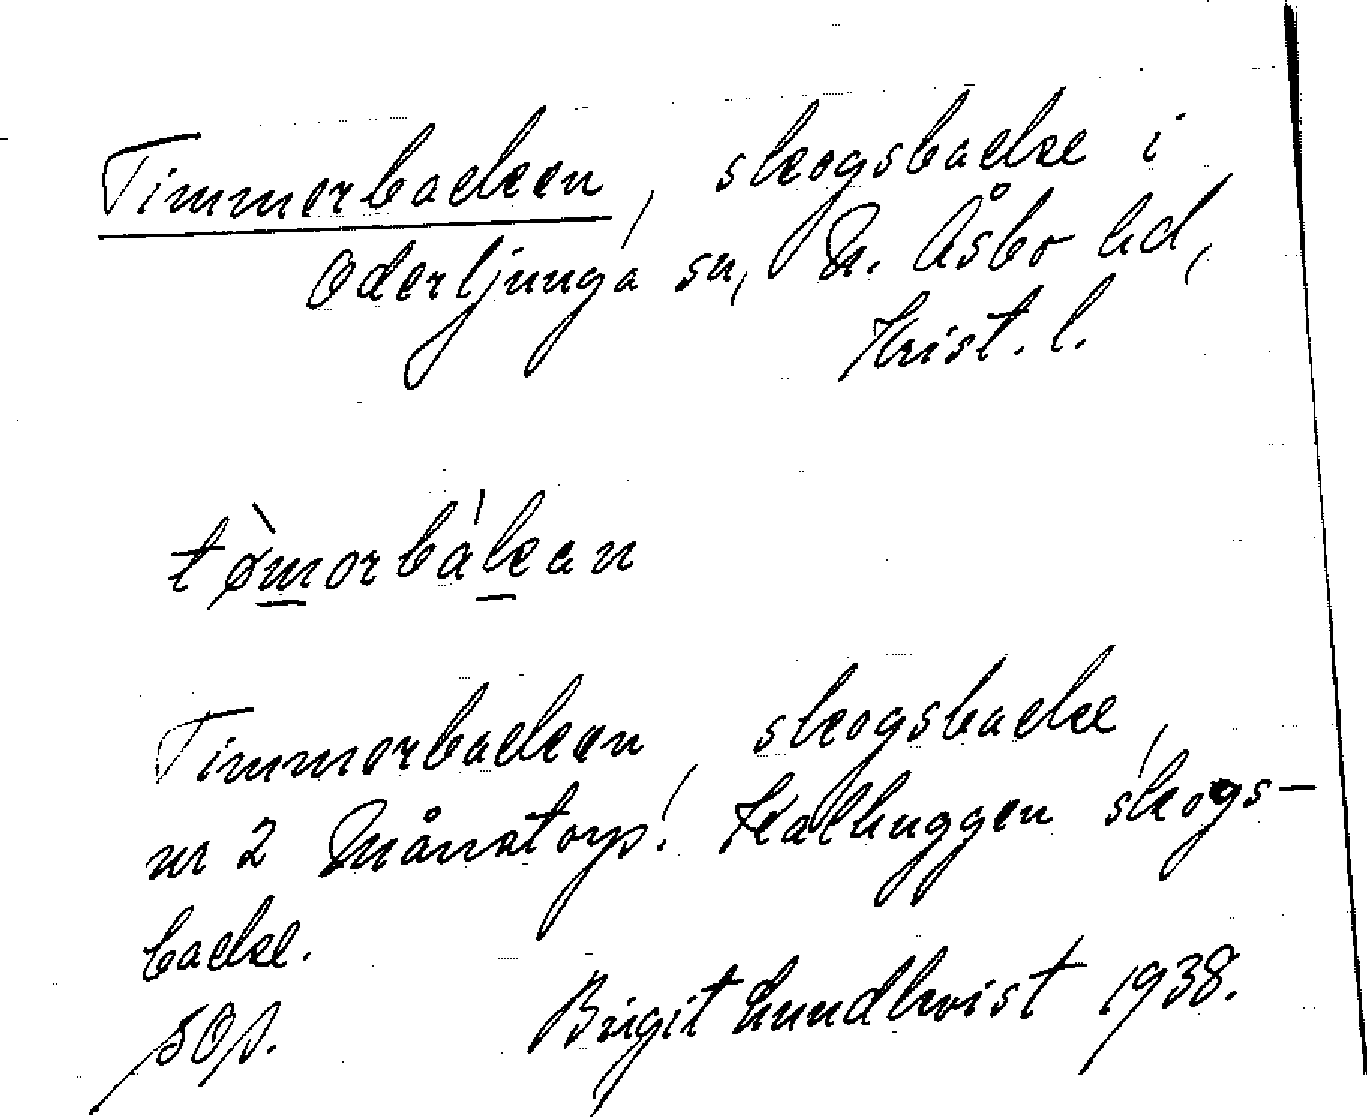 Timmerbacken, skogsbacke i
Oderljunga sn, N. Åsbo hd,
Krist. l.
tømorbákan
Timmerbacken, skogsbacke,
nr 2 Månstorp. Kalhuggen skogs-
backe.
Birgit Lundkvist 1938.